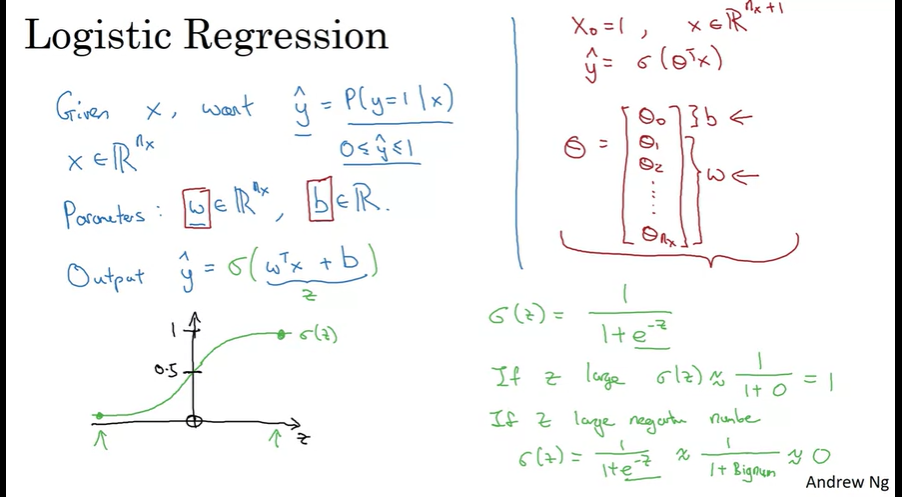 Logistic Regression
Given x, want ŷ = P(y=1|x)
x ∈ ℝ^{n_x}
0 ≤ ŷ ≤ 1
Parameters: w ∈ ℝ^{n_x}, b ∈ ℝ.
Output ŷ = σ(w^T x + b)
z
1
σ(z)
0.5
z
x_0 = 1, x ∈ ℝ^{n_x+1}
ŷ = σ(θ^T x)
θ = [θ_0 } b ←
θ_1
θ_2
⋮
θ_{n_x}] } w ←
σ(z) = 1/(1+e^{-z})
If z large σ(z) ≈ 1/(1+0) = 1
If z large negative number
σ(z) = 1/(1+e^{-z}) ≈ 1/(1+Bignum) ≈ 0
Andrew Ng